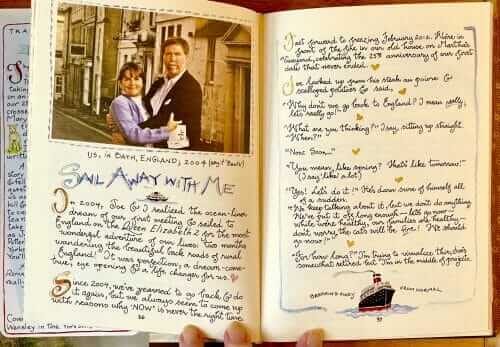 TRA
US, in BATH, ENGLAND, 2004 (say "Baath")
SAIL AWAY WITH ME
In 2004, Joe & I realized the ocean-liner
dream of our first meeting & sailed to
England on the Queen Elizabeth 2 for the most
wonderful adventure of our lives: two months
wandering the beautiful back roads of rural
England! It was perfection, a dream-come-
true, eye opening & a life changer for us.
Since 2004, we've yearned to go back & do
it again, but we always seem to come up
with reasons why "NOW" is never the right time.
36
Fast forward to freezing February 2012. We're in
front of the fire in our old house on Martha's
Vineyard, celebrating the 25th anniversary of our first
date that never ended.
Joe looked up from his steak au poivre &
scalloped potatoes & said,
"Why don't we go back to England? I mean really,
let's really go!"
"What are you thinking?" I say, sitting up straight
"When?"
"Now. Soon."
"You mean, like spring? That's like tomorrow!"
(I say 'like' a lot)
"Yes! Let's do it!" He's damn sure of himself all
of a sudden.
"We keep talking about it, but we don't do anything
We've put it off long enough — let's go now —
while we're healthy, our families are healthy —
don't worry, the cats will be fine! We should
go now!"
"For how long?" I'm trying to visualize this, he's
somewhat retired but I'm in the middle of projects.
BREAKING AWAY
FROM NORMAL
37